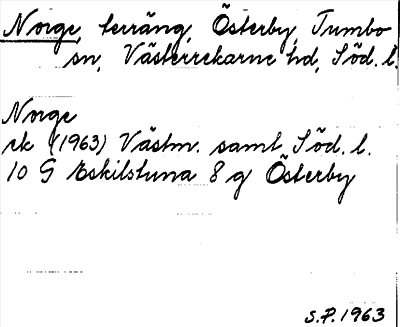 Norge, terräng, Österby, Tumbo
sn, Västerrekarne hd, Söd. l.
Norge
rk (1963) Västm. samt Söd. l.
10 G Eskilstuna 8 g Österby
S.P. 1963